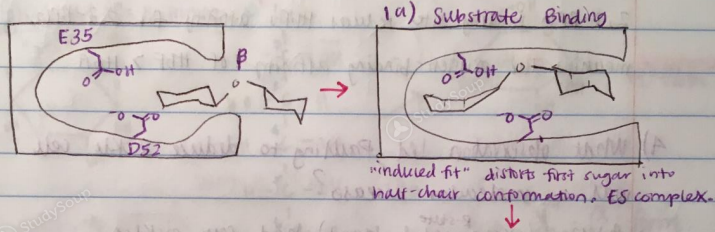 1a) Substrate Binding
E35
OH
O
β
O
-O
O
D52
O
OH
O
-O
O
"induced fit" distorts first sugar into
half-chair conformation. ES complex.
StudySoup
StudySoup